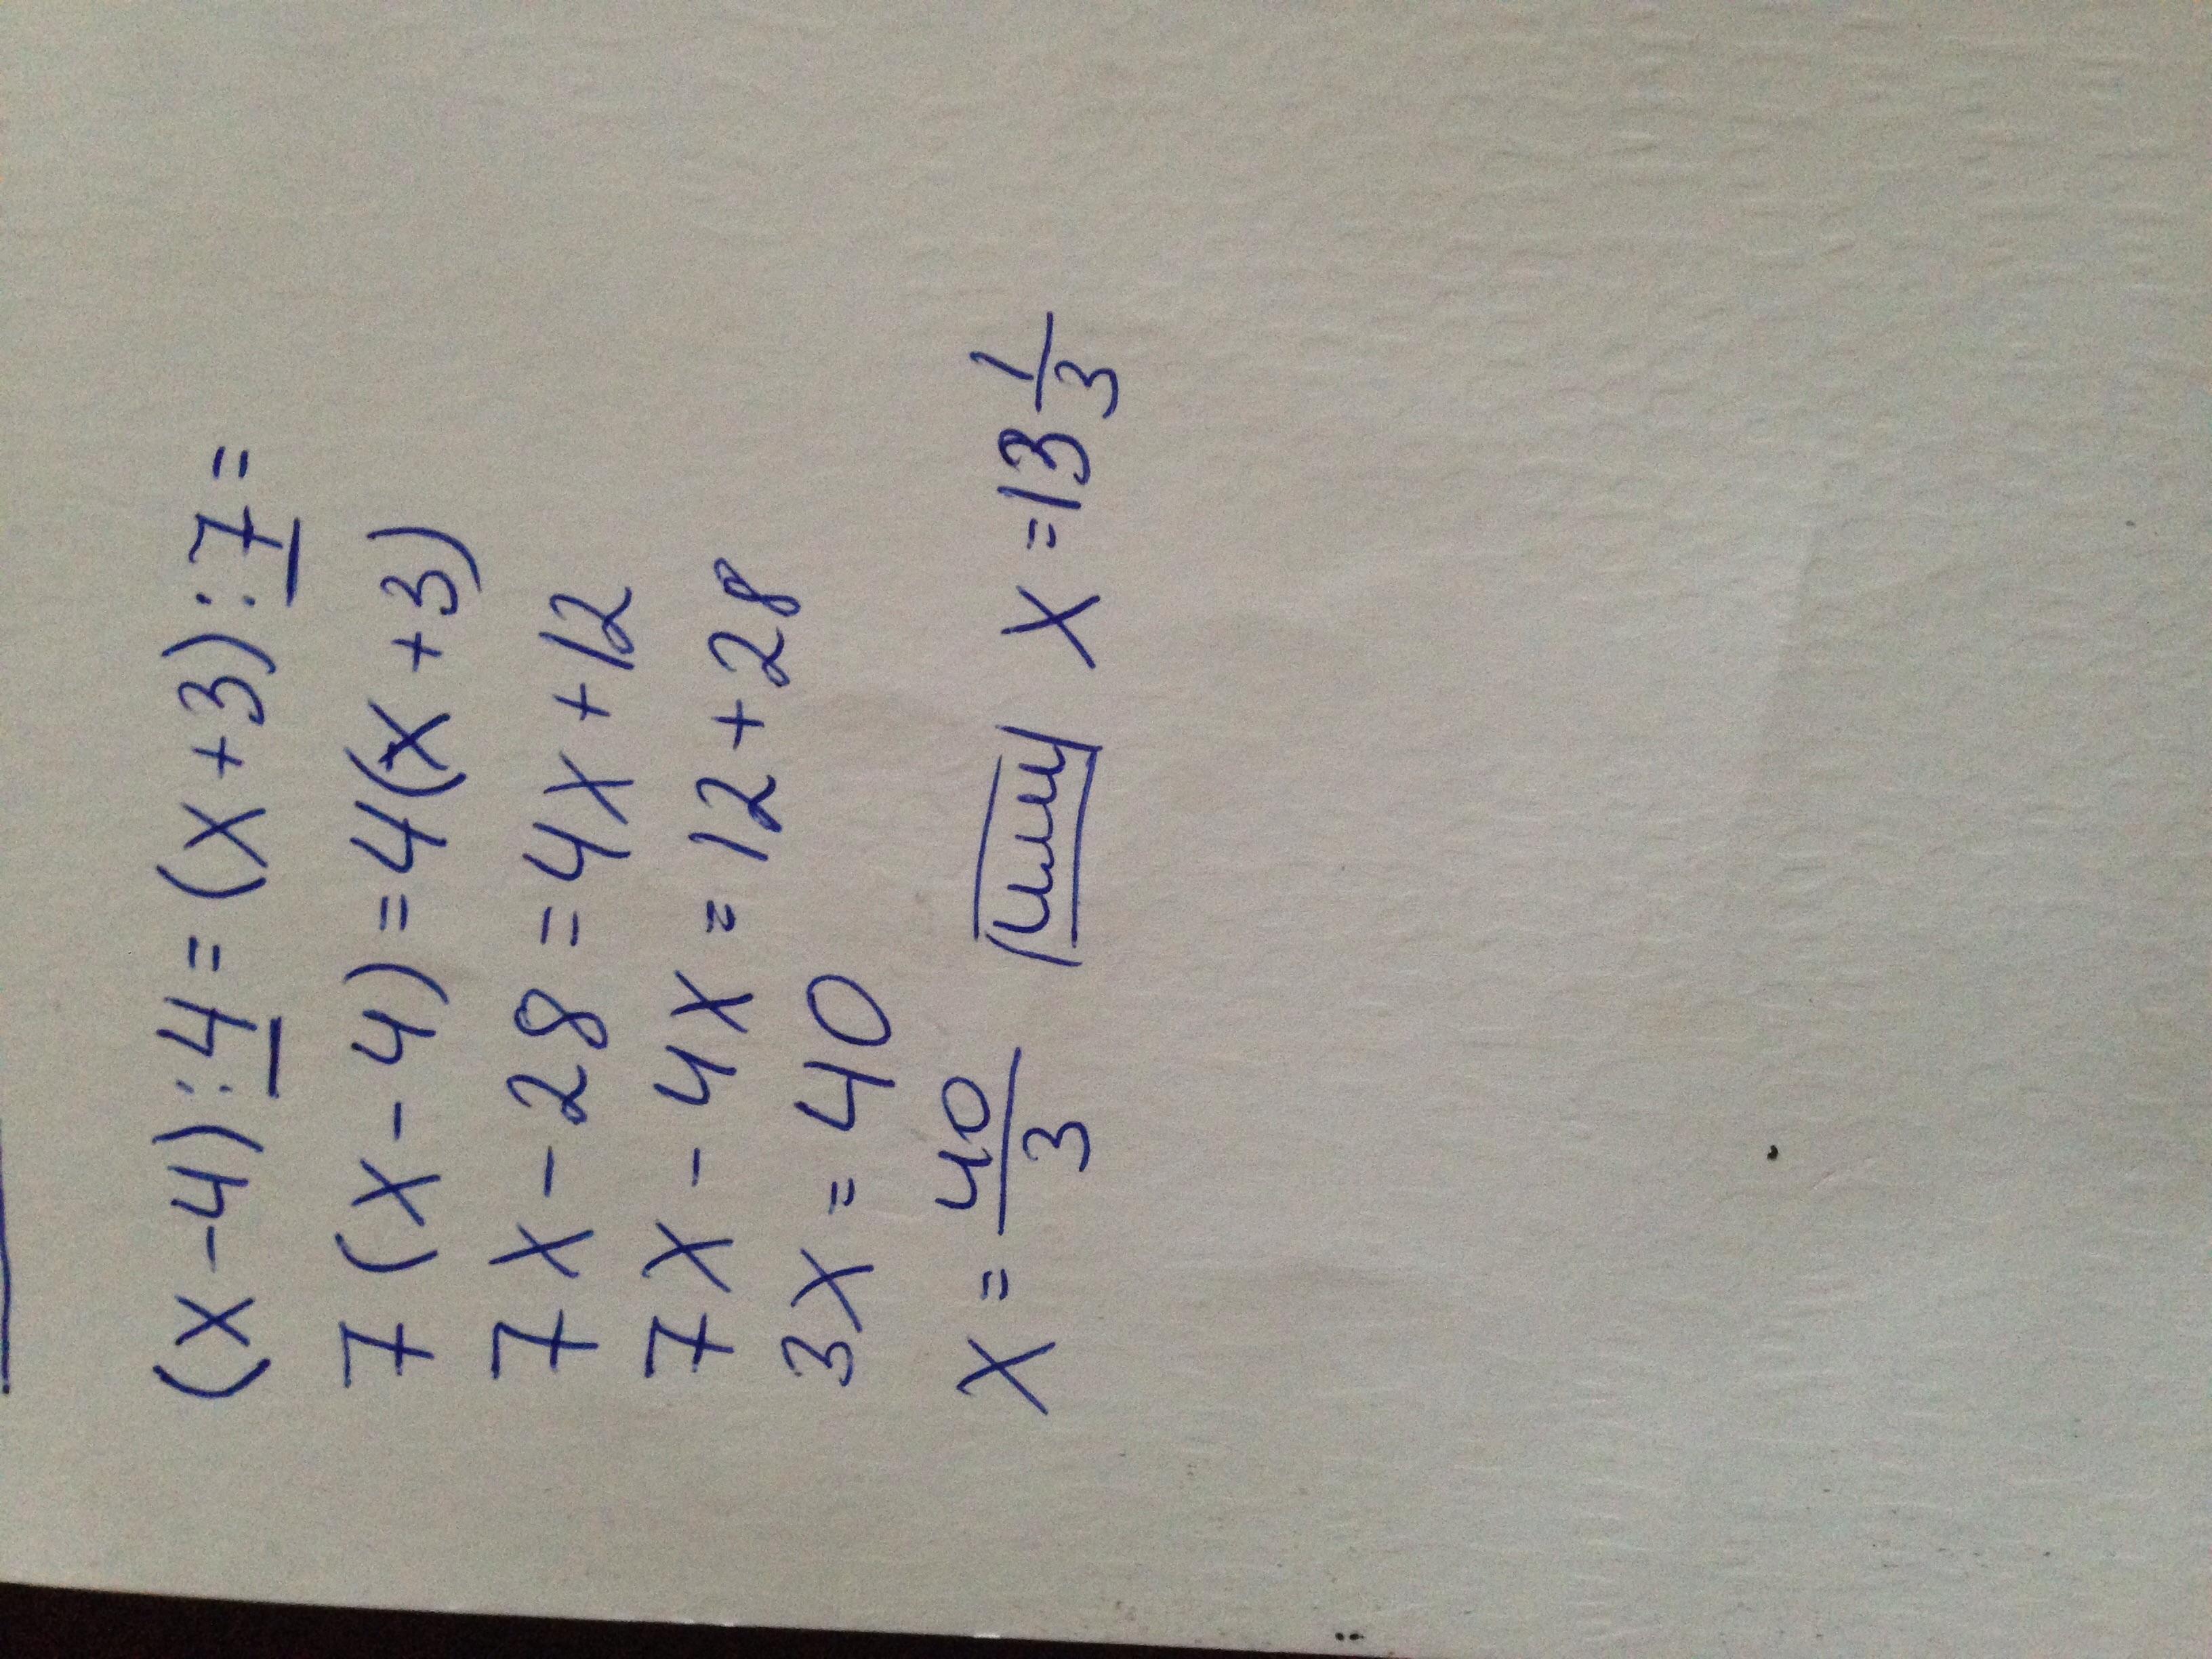 (x-4):4=(x+3):7=
7(x-4)=4(x+3)
7x-28=4x+12
7x-4x=12+28
3x=40
x=40/3 x=13 1/3